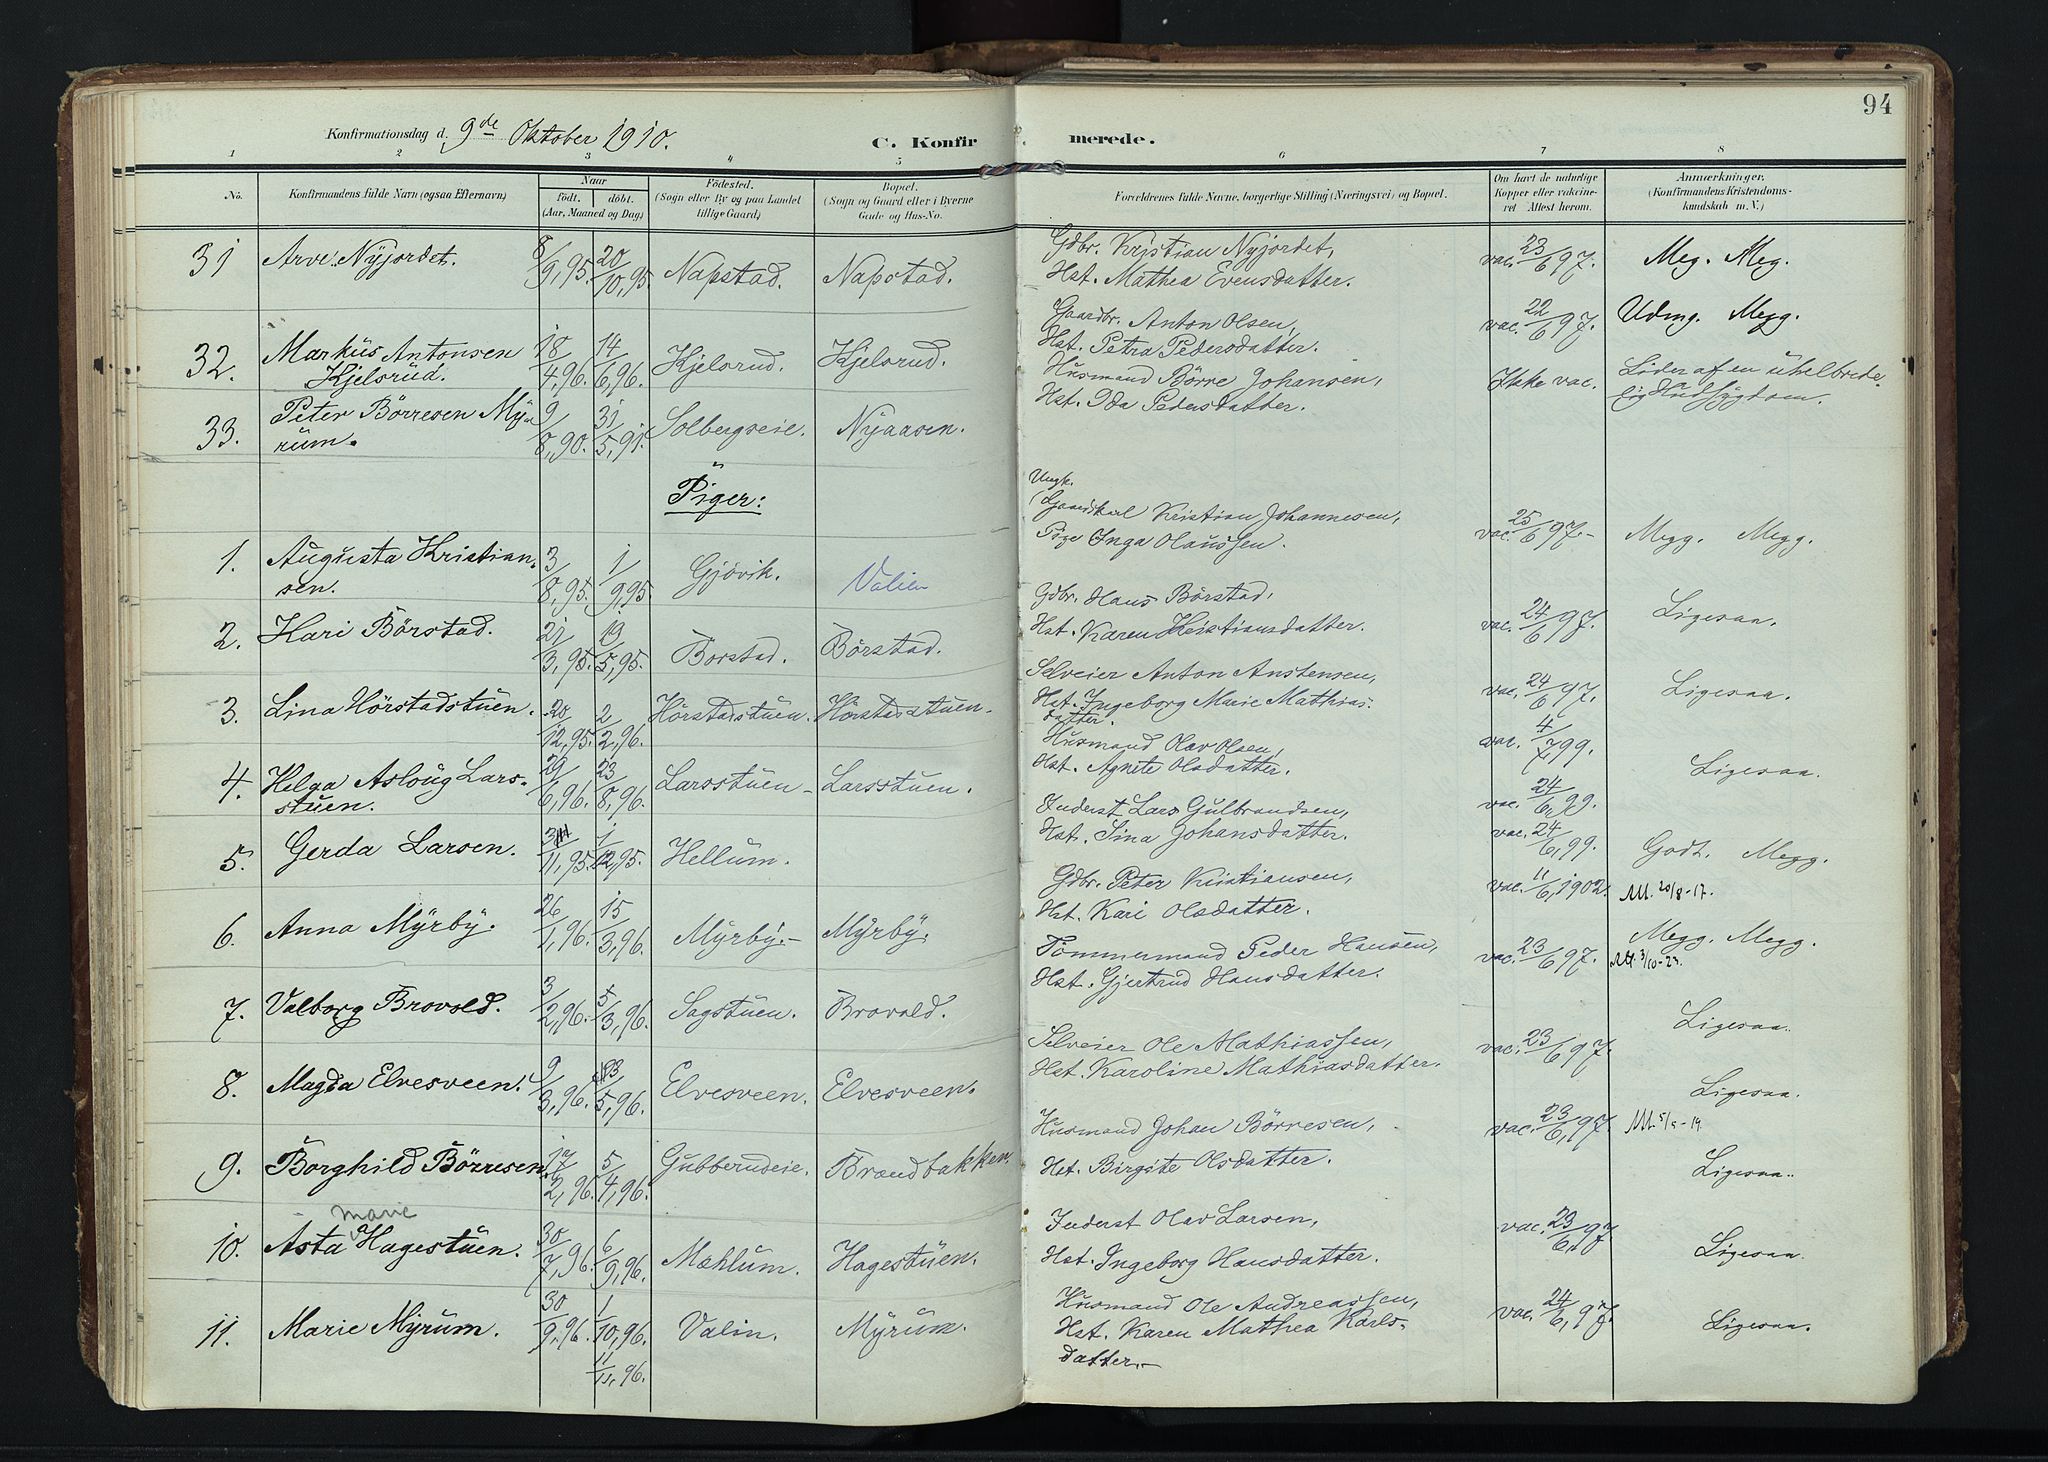 94
Konfirmationsdag d. 9de Oktober 1910.
C. Konfir merede.
1 2 3 4 5 6 7 8
No.
Konfirmandens fulde Navn (ogsaa Efternavn)
Naar
født. døbt.
(Aar, Maaned og Dag)
Fødested.
(Sogn eller By og paa Landet
tillige Gaard)
Bopæl.
(Sogn og Gaard eller i Byerne
Gade og Hus-No.
Forældrenes fulde Navne, borgerlige Stilling (Næringsvei) og Bopæl.
Om havt de naturlige
Kopper eller vakcine-
ret Attest herom.
Anmærkninger.
(Konfirmandens Kristendoms-
kundskab m.V.)
31 Arve Nyjordet. 8/9,95. 20/10,95. Napstad. Napstad.
Gdbr. Kristian Nyjordet,
Hst. Mathea Evensdatter.
vac. 23/6 97. Meg. Meg.
32. Markus Antonsen
Kjelsrud.
18/4,96. 14/6,96. Kjelsrud. Kjelsrud.
Gaardbr. Anton Olsen,
Hst. Petra Pedersdatter.
vac. 22/6 97. Udmg. Megg.
33. Peter Börresen Myr
rum.
9/8,90. 31/5,91. Solbergseie. Nyaasen.
Husmand Börre Johansen,
Hst. Ida Pedersdatter.
Ikke vac. Lider af en uhelbrede
lig Hudsygdom.
Piger:
1. Augusta Kristian-
sen.
3/8,95. 1/9,95 Gjövik. Valien
Ungk.
Gaardkarl Kristian Johannesen,
Pige Inga Olaussen.
vac. 25/6 97.- Megg. Megg.
2. Kari Börstad. 21/3,95. 19/5,95. Borstad. Börstad.
Gdbr. Hans Börstad,
Hst. Karen Kristiansdatter.
vac. 24/6 97. Ligesaa.
3. Lina Hörstadstuen. 20/12,95. 2/2,96. Hörstadstuen. Hörstadstuen.
Selveier Anton Anstensen,
Hst. Ingeborg Marie Mathias-
datter.
vac. 24/6 97. Ligesaa.
4. Helga Asloug Lars-
stuen.
29/6,96. 23/8,96. Larsstuen - Larsstuen.
Husmand Olav Olsen,
Hst. Agnete Olsdatter.
vac. 4/7 99.
Ligesaa.
5. Gerda Larsen. 11,95. 1/12,95. Hellum.
Inderst Lars Gulbrandsen,
Hst. Sina Johansdatter.
vac. 24/6, 99.
vac. 24/6, 99.
Godt. Megg.
6. Anna Myrby. 26/1,96. 15/3,96. Myrby.- Myrby.
Gdbr. Peter Kristiansen,
Hst. Kari Olsdatter.
vac. 11/6, 1902. Utl. 20/8-17.
Megg. Megg.
7. Valborg Brovold. 3/2,96. 5/3,96. Sagstuen. Brovold.
Tömmermand Peder Hansen,
Hst. Gjertrud Hansdatter.
vac. 23/6 97. Utl. 3/10-23.
Ligesaa.
8. Magda Elvesveen. 9/3,96. 5,96. Elvesveen. Elvesveen.
Selveier Ole Mathiassen,
Hst. Karoline Mathiasdatter.
vac. 23/6 97.
Ligesaa.
9. Borghild Börresen. 17/2,96. 5/4,96. Gubberudeie. Brandbakken.
Husmand Johan Börresen,
Hst. Birgite Olsdatter.
vac. 23/6, 97. Utl. 5/5-19.
Ligesaa.
marie
10. Asta Hagestuen. 30/7,96. 6/9,96. Mæhlum. Hagestuen.
Inderst Olav Larsen,
Hst. Ingeborg Hansdatter.
vac. 23/6, 97
Ligesaa.
11. Marie Myrum. 30/9,96. 1/10,96. Valin. Myrum.
11/11,96.
Husmand Ole Andreassen,
Hst. Karen Mathea Karls-
datter.-
vac. 24/6, 97.
Ligesaa.